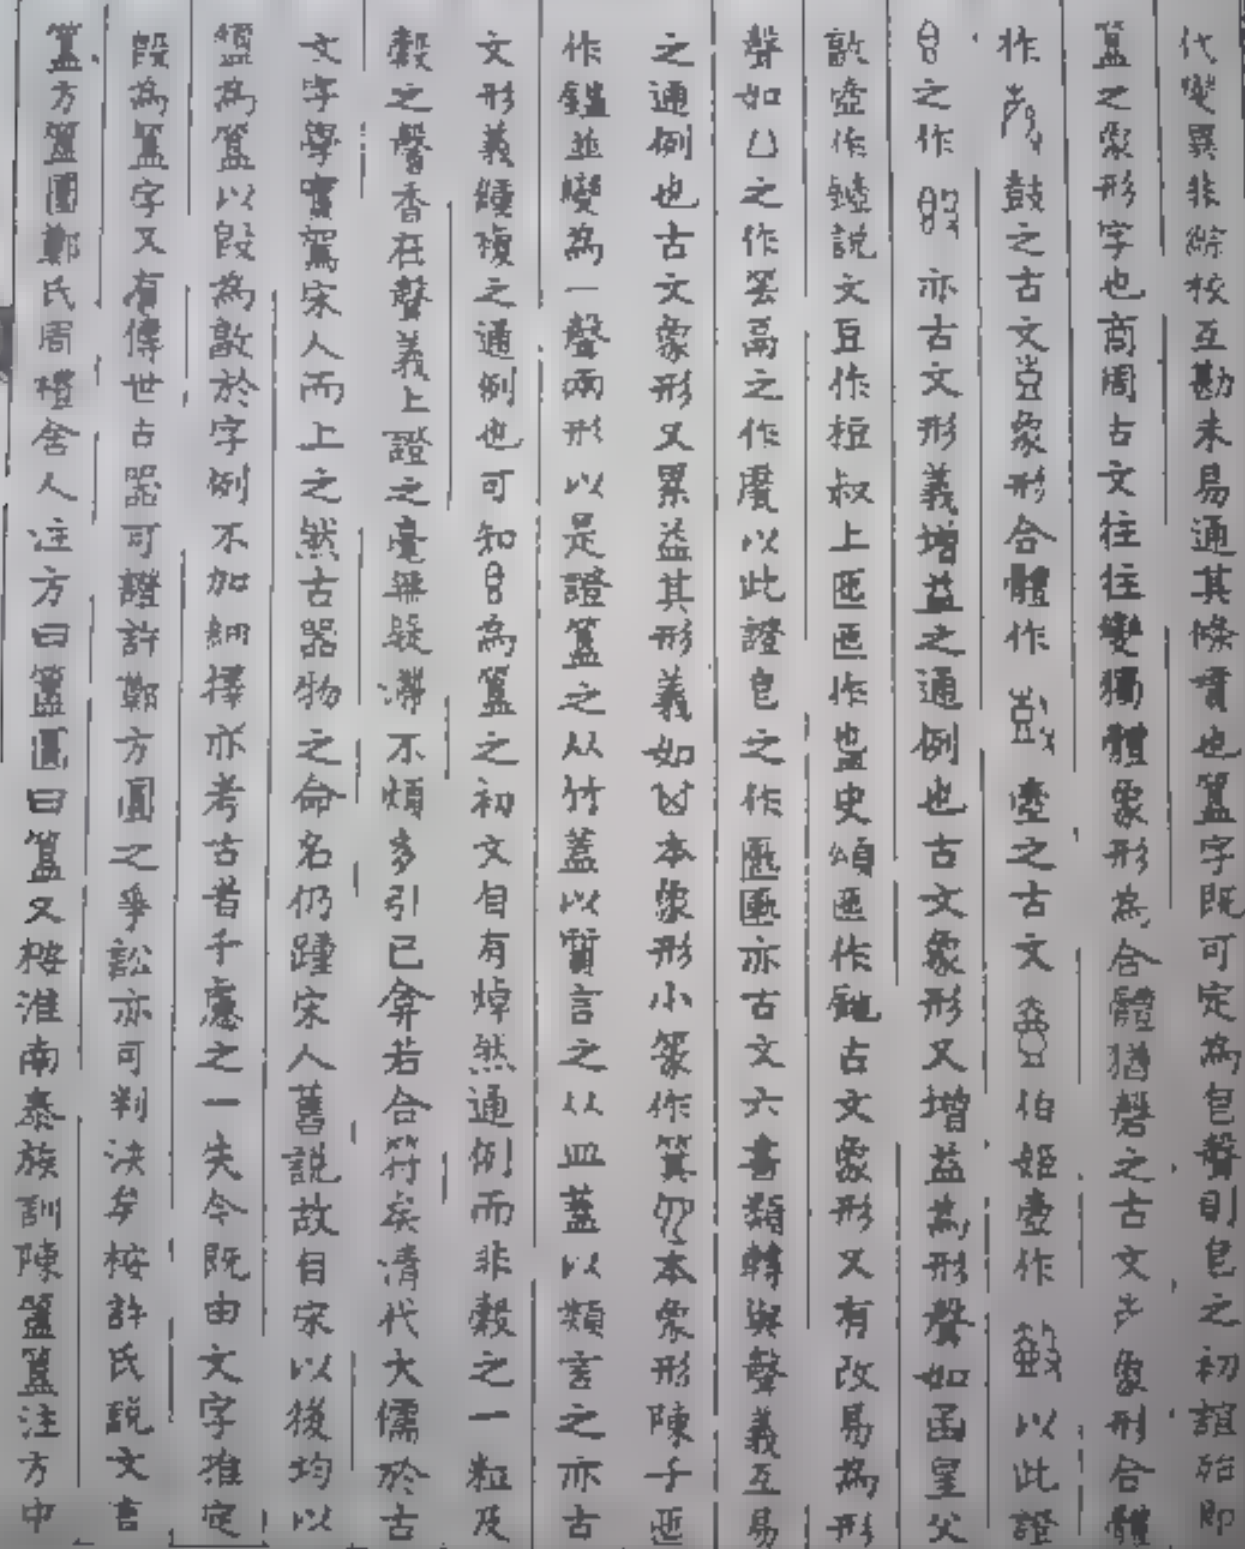 代變異非綜校互勘未易通其條貫也簋字既可定為皀聲則皀之初誼殆即
簋之象形字也商周古文往往變獨體象形為合體猶磬之古文声象形合體
作殸鼓之古文壴象形合體作鼓壺之古文壺伯姬壺作以此證
皀之作𣪘亦古文形義增益之通例也古文象形又增益為形聲如函皇父
敦壺作鎑說文豆作梪叔上匜匜作盤史頌匜作鉈古文象形又有改易為形
聲如凵之作䍃鬲之作䰛以此證皀之作匭匭亦古文六書類轉與聲義互易
之通例也古文象形又累益其形義如𠀠本象形小篆作箕本象形陳子匜
作鎰並變為一聲兩形以是證簋之从竹蓋以質言之从皿蓋以類言之亦古
文形義緟複之通例也可知皀為簋之初文自有焯然通例而非穀之一粒及
穀之馨香在聲義上證之毫無疑滯不煩多引已弇若合符矣清代大儒於古
文字學實駕宋人而上之然古器物之命名仍踵宋人舊說故自宋以後均以
盨為簋以𣪘為敦於字例不加細擇亦考古者千慮之一失今既由文字推定
𣪘為簋字又有傳世古器可證許鄭方圓之爭訟亦可判決矣桉許氏說文言
簋方簠圜鄭氏周禮舍人注方曰簠圓曰簋又桉淮南泰族訓陳簠簋注方中